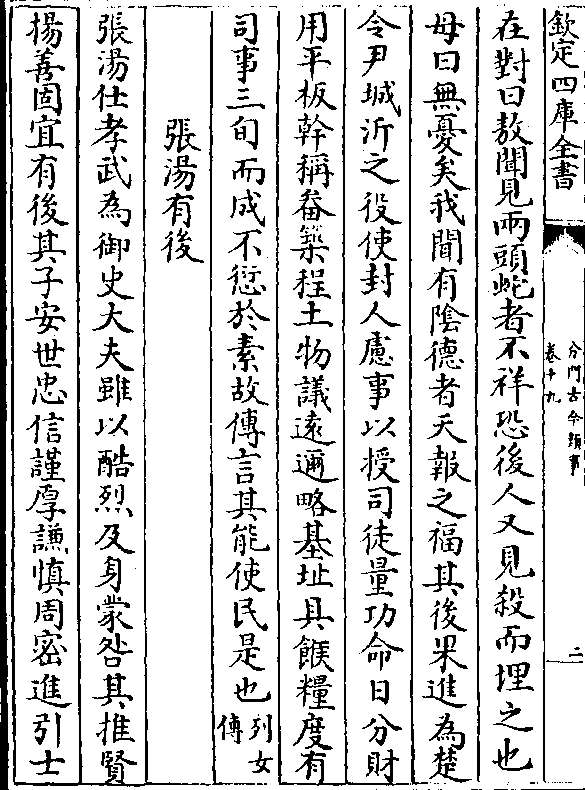 欽定四庫全書
分門古今類事
卷十九
二
在對曰敖聞見兩頭蛇者不祥恐後人又見殺而埋之也
母曰無憂矣我聞有陰德者天報之福其後果進為楚
令尹城沂之役使封人慮事以授司徒量功命日分財
用平板幹稱畚築程土物議遠邇略基址具餱糧度有
司事三旬而成不愆於素故傳言其能使民是也列女傳
張湯有後
張湯仕孝武為御史大夫雖以酷烈及身蒙咎其推賢
揚善固宜有後其子安世忠信謹厚謙慎周密進引士